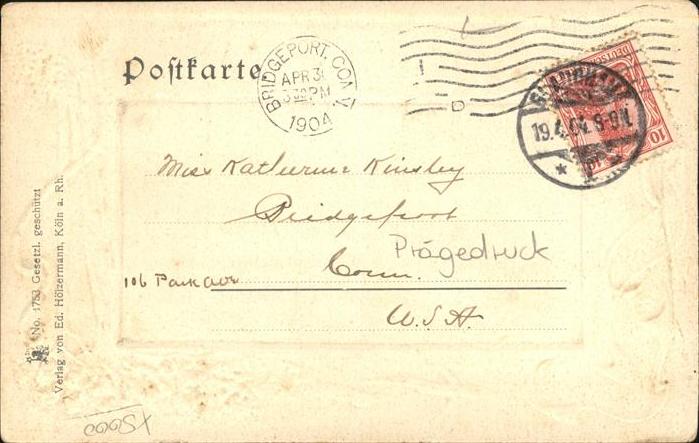 Postkarte
BRIDGEPORT, CONN
APR 30
3 30 PM
1904
19.4.04. 8-9 N.
DEUTSCHES
10
Miss Katherine Kinsley
Bridgeport
Prägedruck
Conn.
106 Park Ave
U.S.A.
No. 1753 Gesetzl. geschützt
Verlag von Ed. Hölzermann, Köln a. Rh.